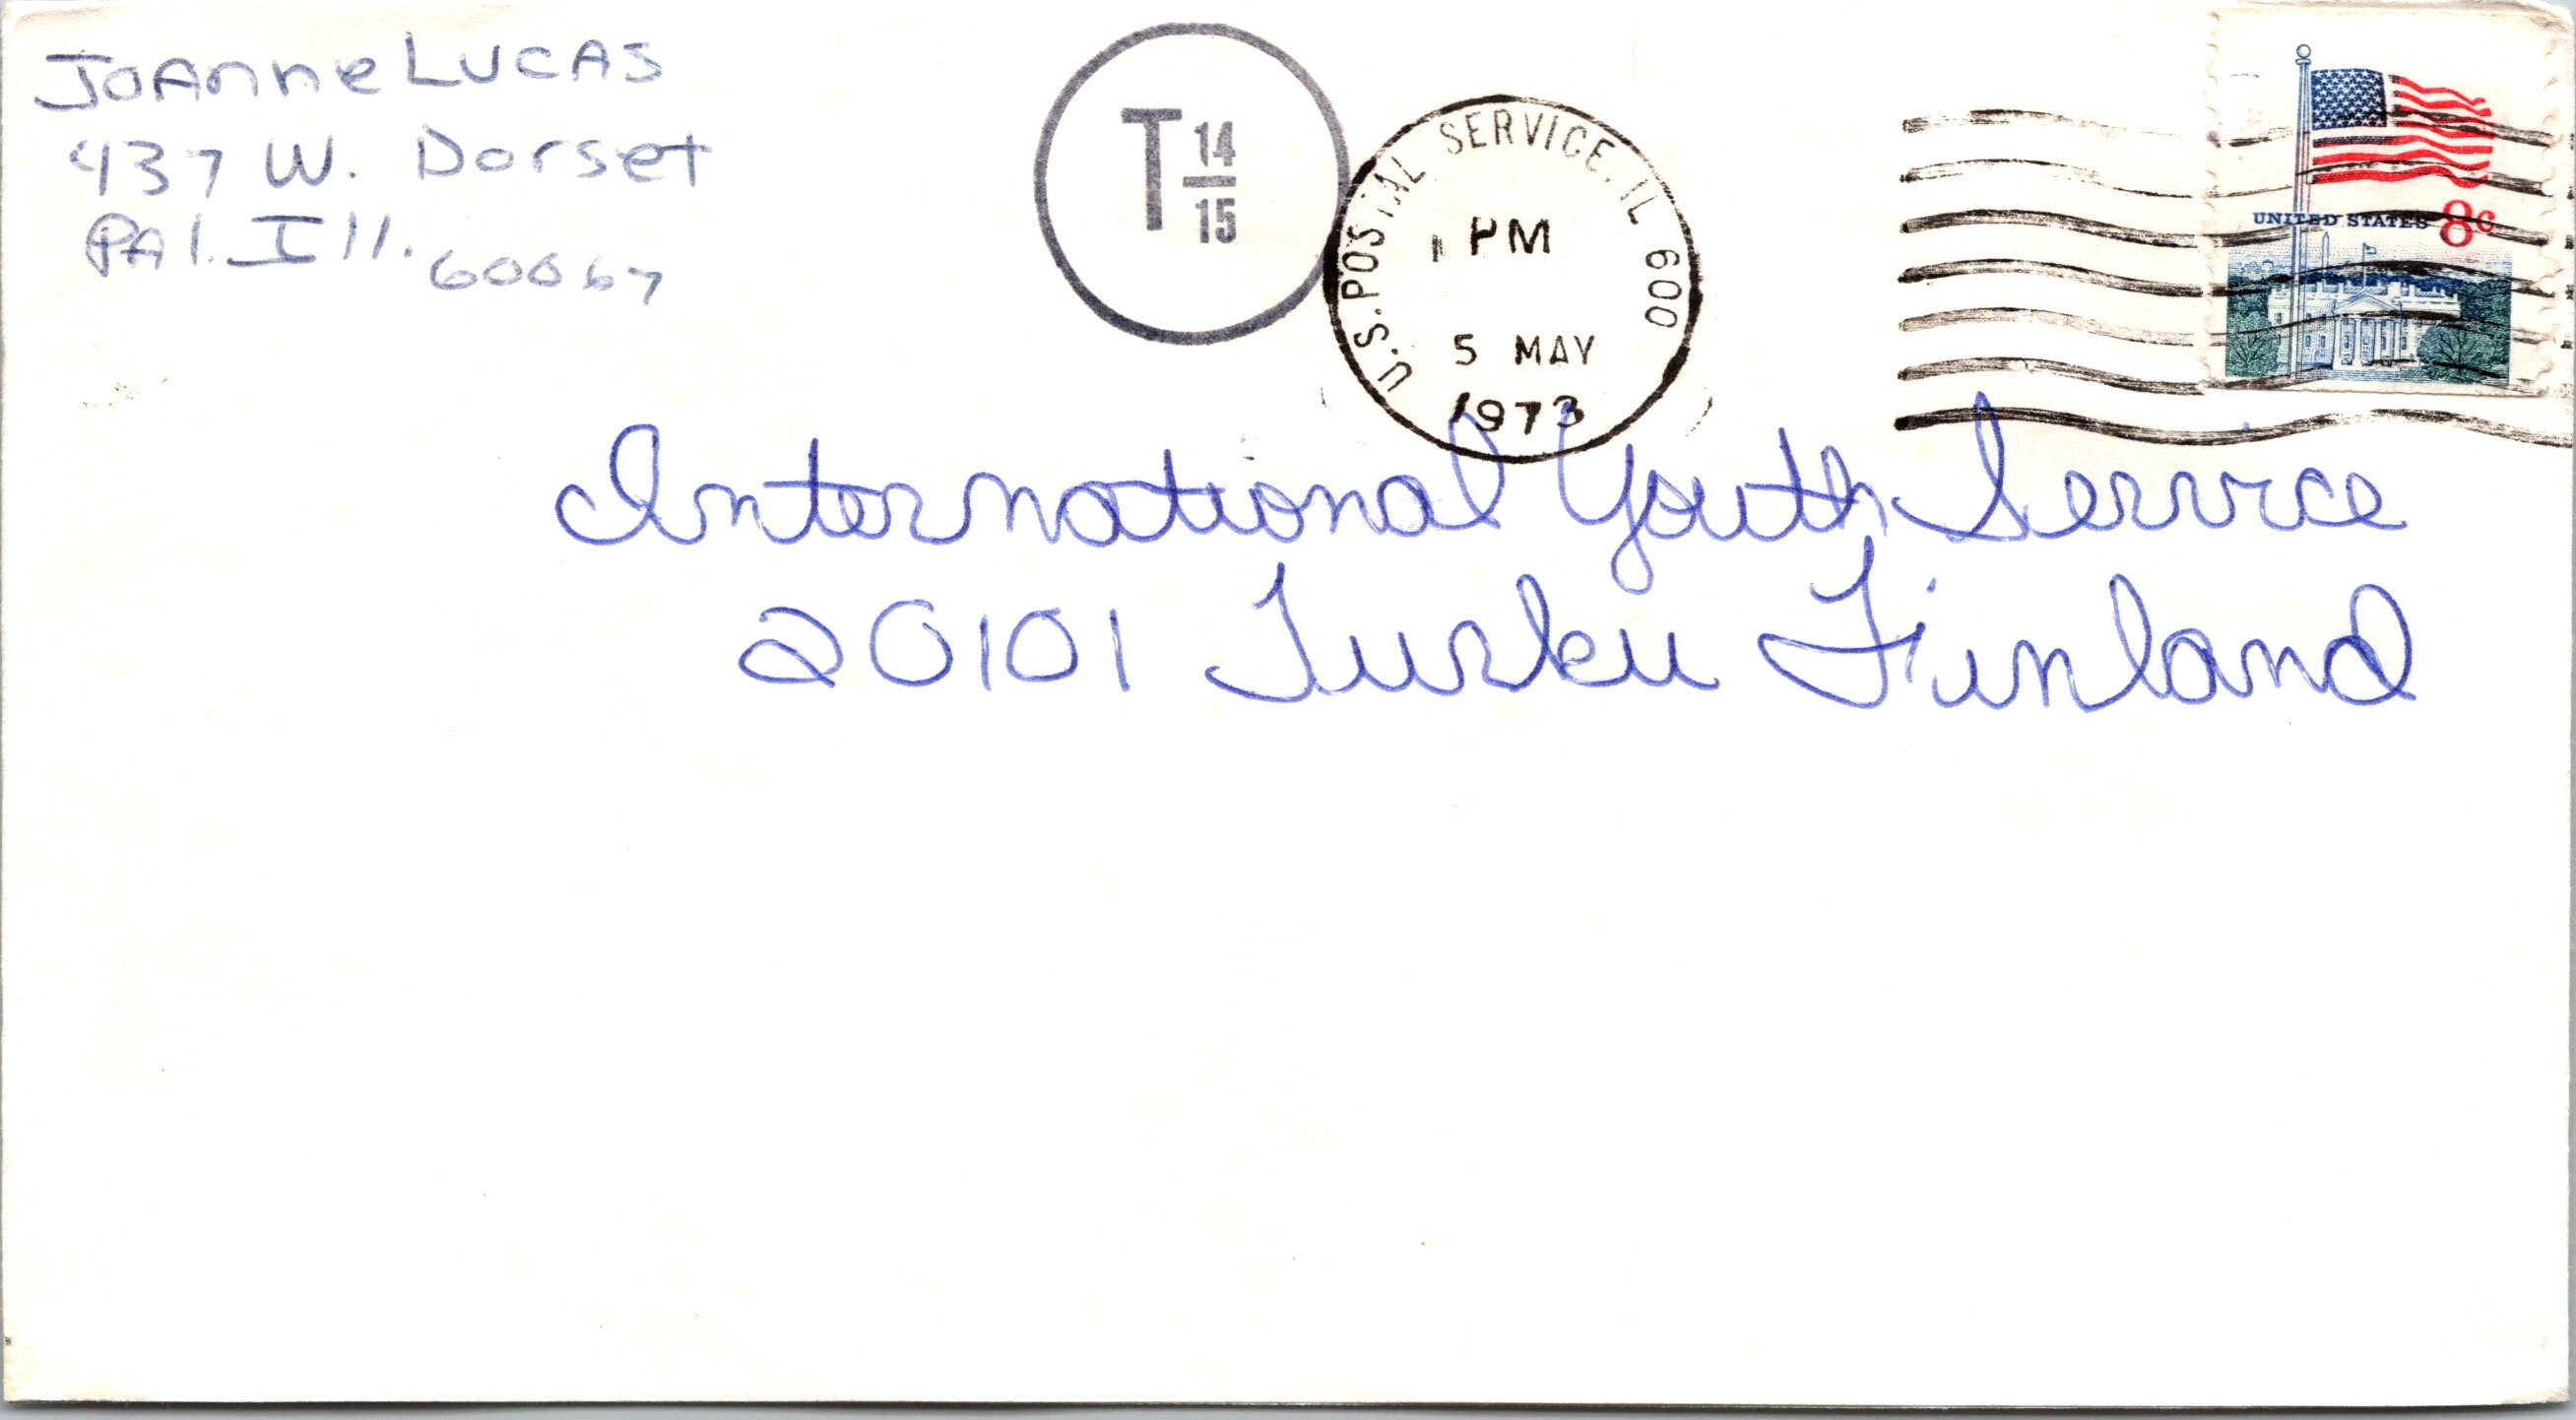 JoAnne Lucas
437 W. Dorset
PAl. Ill. 60067
T 14/15
U.S. POSTAL SERVICE, IL 600
PM
5 MAY
1973
UNITED STATES 8c
International Youth Service
20101 Turku Finland